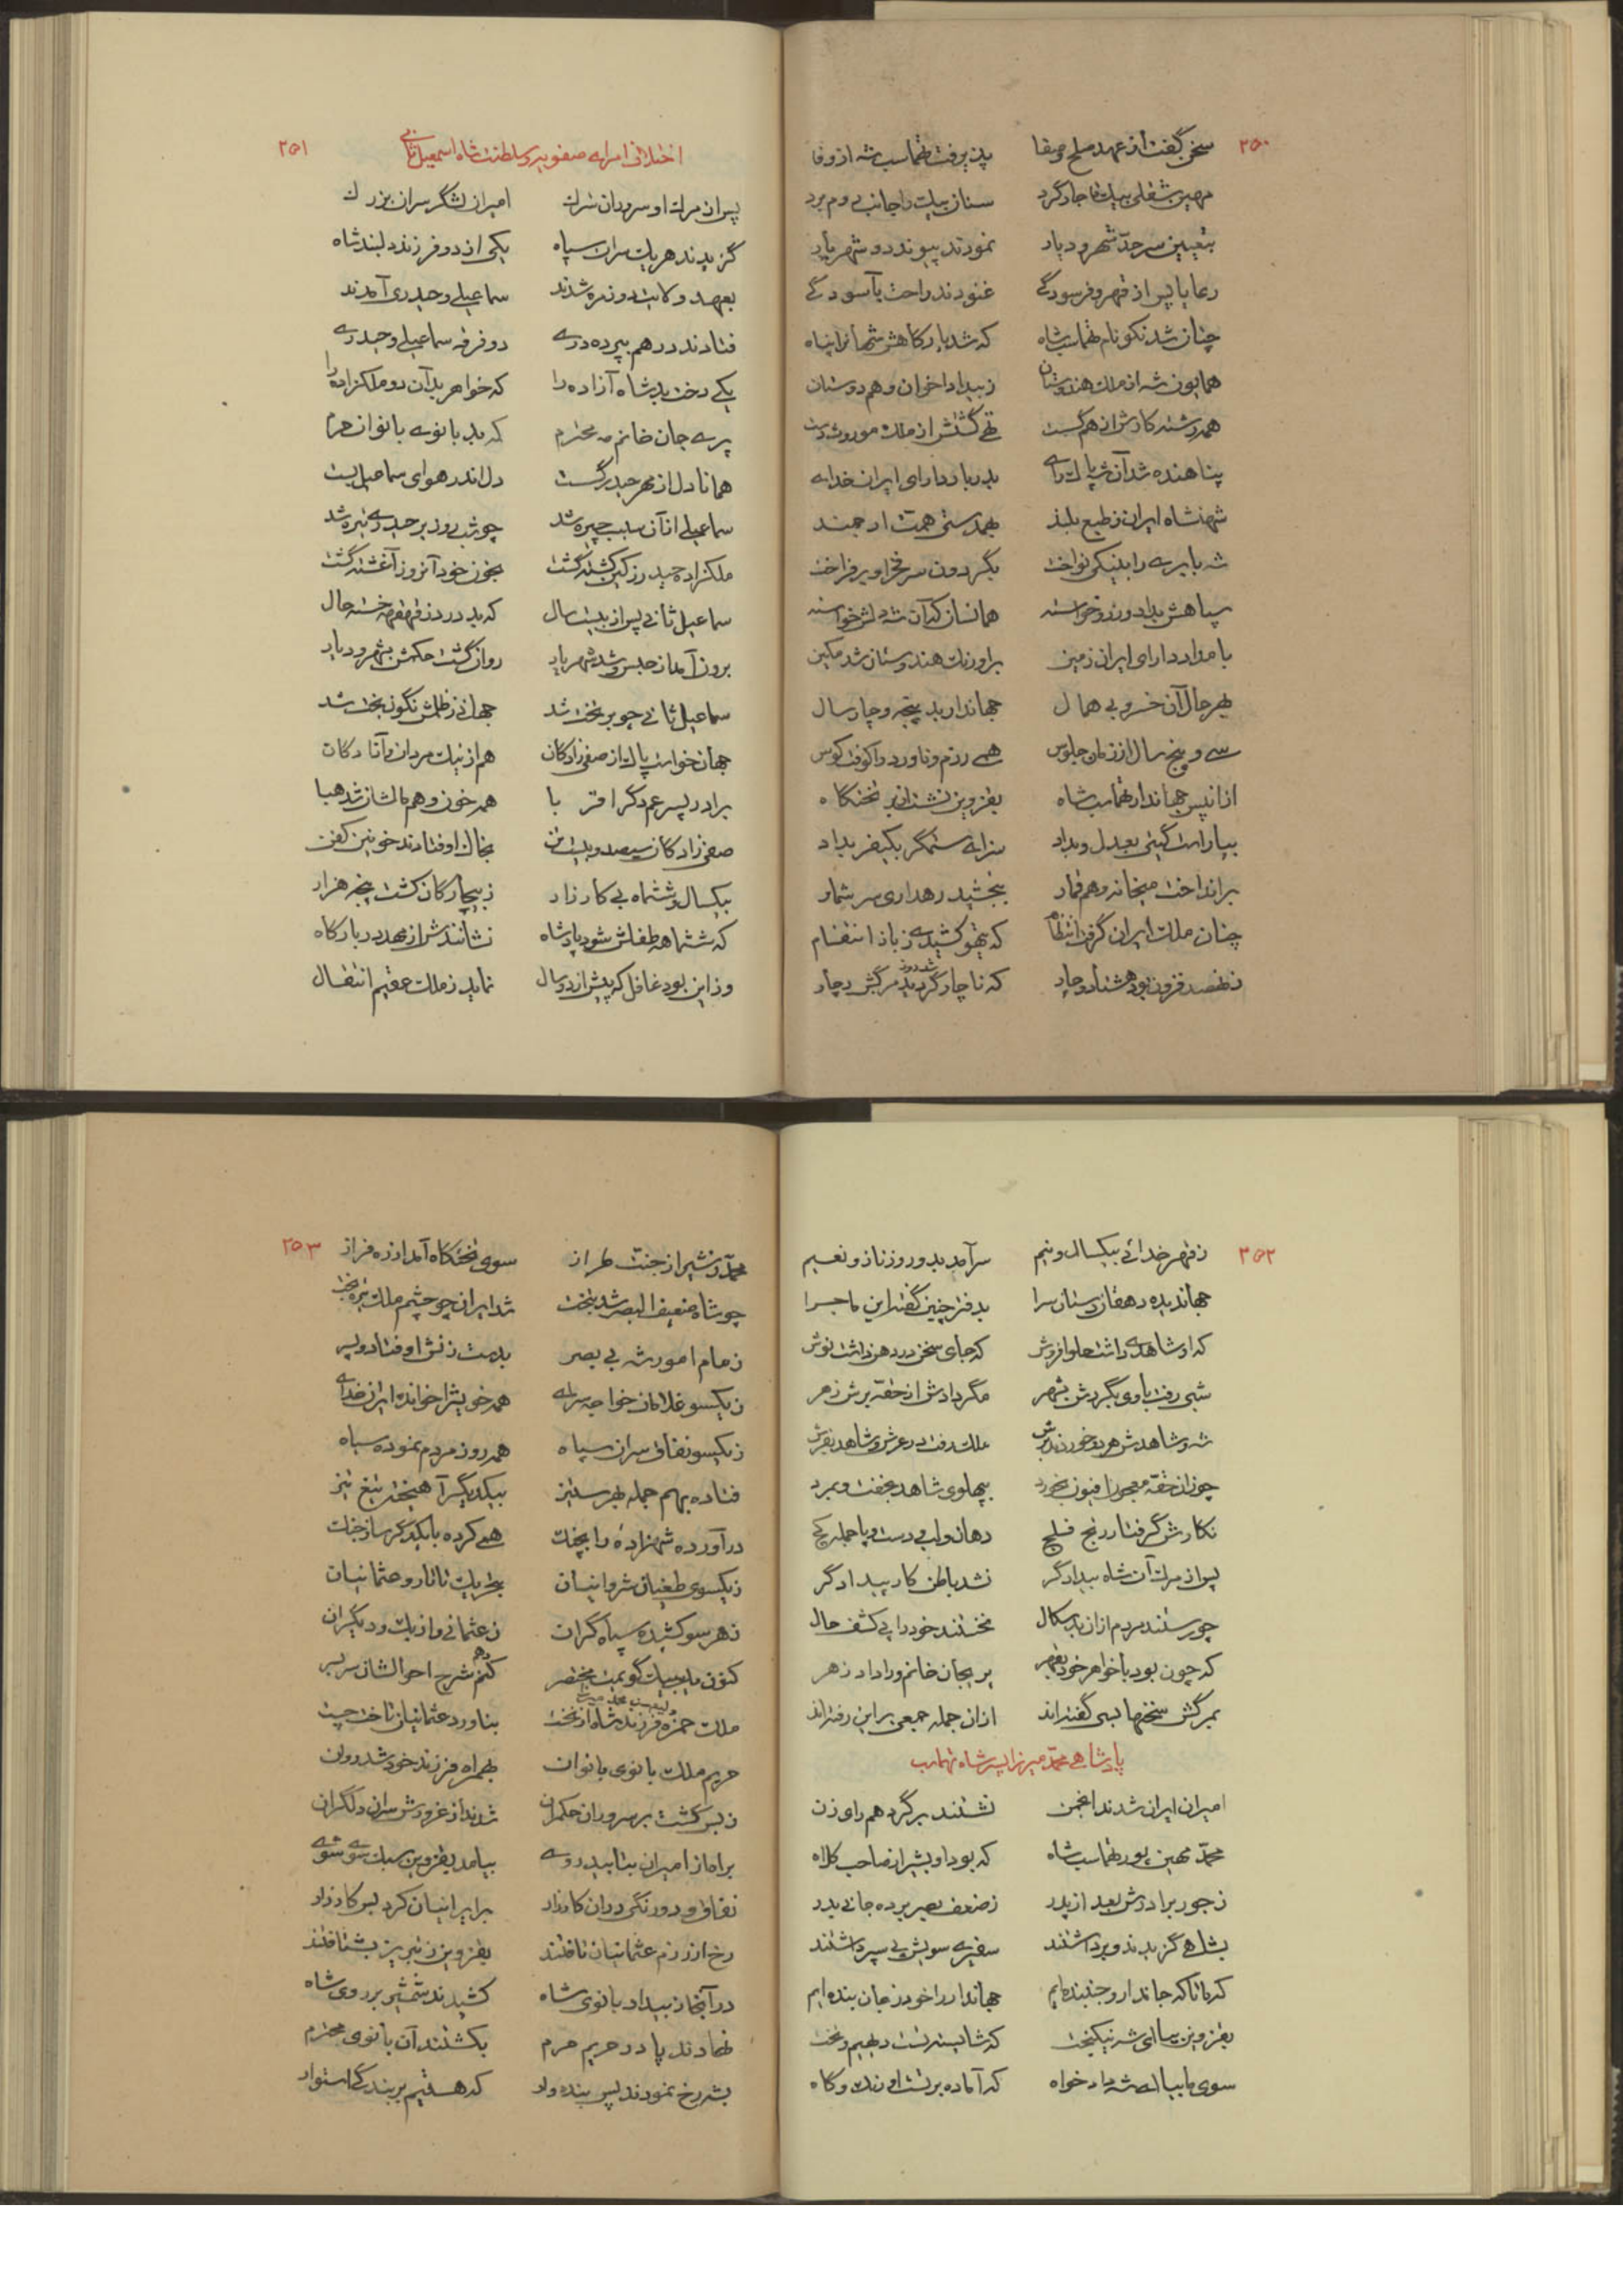 ۲۵۰
سخن گفت از عهد صلح و صفا پذیرفت طهماسب شه از وفا
بتعیین سرحد شهر و دیار نمودند پیوند دو شهریار
رعایا پس از قهر و فرسودگی غنودند راحت بآسودگی
چنان شد نکو نام طهماسب شاه که شد بارگاهش شهانرا پناه
همایون شه از ملک هندوستان ز بیداد اخوان و هم دوستان
همه رشته کارش از هم گسست تهی گشتش از ملک موروث دست
پناهنده شد آن شه پاک رای بدربار دارای ایران خدای
شهنشاه ایران ز طبع بلند بهمدستی همت ارجمند
شه بابری را بنیکی نواخت بگردون سر فخر او برفراخت
سپاهش بداد و زر و خواسته همانسان که آن شه دلش خواسته
بامداد دارای ایران زمین براورنگ هندوستان شد مکین
بهر حال آن خسرو بی همال جهاندار بد پنجه و چار سال
سی و پنج سال از زمان جلوس همی رزم و ناورد را کوفت کوس
از آنپس جهاندار طهماسب شاه بقزوین نشستن بر تختگاه
بیاراست گیتی بعدل و بداد سزای ستمگر بکیفر بداد
برانداخت میخانه و هم قمار ببخشید رهداری سر شمار
چنان ملک ایران گرفت انتظام که تیهو کشیدی ز باز انتقام
ز نهصد فزون بود هشتاد و چار که ناچار گردید مرگش دچار
۲۵۱
اختلاف امرای صفویه و سلطنت شاه اسمعیل ثانی
پس از مرگ او سروران سترک امیران لشگر سران بزرک
گزیدند هر یک سران سپاه یکی از دو فرزند دلبند شاه
بعهد ولایت دو زمره شدند سماعیلی و حیدری آمدند
فتادند در هم بپرده‌دری دو فرقه سماعیلی و حیدری
یکی دخت بد شاه آزاده را که خواهر بد آن دو ملکزاده را
پری جان خانم مه محترم که بد بانوی بانوان حرم
همانا دل از مهر حیدر گسست دل اندر هوای سماعیل بست
سماعیلی از آن سبب چیره شد چو شب روز بر حیدری تیره شد
ملکزاده حیدر ز کین کشته گشت بخون خود آنروز آغشته گشت
سماعیل ثانی پس از بیست سال که بد در دز قهقهه خسته حال
برون آمد از حبس و شد شهریار روان گشت حکمش بشهر و دیار
سماعیل ثانی چو بر تخت شد جهانی ز ظلمش نگون بخت شد
جهان خواست پاک از صفی زادگان هم از نیک مردان و آزادگان
برادر پسر عم دگر اقربا همه خون و هم مالشان شد هبا
صفی زادگان سیصد و بیست تن بخاک اوفتادند خونین کفن
بیکسال و ششماه بی کارزار ز بیچارگان کشت پنجه هزار
که ششماهه طفلش شود پادشاه نشانندش از مهد در بارگاه
وز این بود غافل که پیش از دو سال نماید ز ملک عقیم انتقال
۲۵۲
ز قهر خدائی بیکسال و نیم سرآمد بدو روز ناز و نعیم
جهاندیده دهقان دستانسرا بدفتر چنین گفت این ماجرا
که او شاهدی داشت حلوافروش که جای سخن در دهن داشت نوش
شبی رفت با وی بگردش بشهر مگر دادش از حقه برش زهر
چون از حقه معجون افیون بخورد بپهلوی شاهد بخفت و بمرد
نگارش گرفتار رنج فلج دهان و لب و دست و پا جمله کج
پس از مرگ آن شاه بیدادگر نشد باطن کار بیدادگر
چو رستند مردم از آن بدسگال نخستند خود را پی کشف حال
که چون بود با خواهر خود بقهر پریجان خانم ورا داد زهر
بمرگش سخنها بسی گفته‌اند از آن جمله جمعی بر این رفته‌اند
پادشاهی محمد میرزا پسر شاه طهماسب
امیران ایران شدند انجمن نشستند برگرد هم رای زن
محمد مهین پور طهماسب شاه که بود او بشیراز صاحب کلاه
ز جور برادرش بعد از پدر ز ضعف بصر برده جانی بدر
بشاهی گزیدند و برداشتند سفیری سویش پی سپر داشتند
جهاندار را خود ز جان بنده‌ایم
بقزوین بیا ای شه نیکبخت که شایسته تست دیهیم و تخت
سوی ما بیا ای شه دادخواه که آماده بر تست اورنگ و گاه
۲۵۳
محمد ز شیراز جنت طراز سوی تختگاه آمد از ره فراز
چو شاه ضعیف البصر شد بتخت شد ایران چو چشم ملک تیره بخت
زمام امور شه بی بصر بدست زنش اوفتاد و پسر
ز یکسو غلامان خواجه سرای همه خویش را خوانده ایران خدای
ز یکسو نفاق سران سپاه همه روز مردم نموده سیاه
فتاده بهم جمله بهر ستیز بیکدیگر آهیخته تیغ تیز
درآورده شهزاده را بچنگ همی کرده با یکدگر ساز جنگ
ز یکسوی طغیان شروانیان
ز هر سو کشیده سپاه گران ز عثمانی و ازبک و دیگران
کنون یک بیک گویمت مختصر کنم شرح احوالشان سر بسر
ملک حمزه فرزند شاه از نخست بناورد عثمانیان تاخت چست
حریم ملک بانوی بانوان بهمراه فرزند خود شد روان
ز بس گشت بر سروران حکمران شدند از غرورش سران دلگران
براه از امیران بتابید روی بیامد بقزوین سبک سوی شوی
نفاق و دو رنگی در آن کارزار بر ایرانیان کرد بس کار زار
رخ از رزم عثمانیان تافتند بقزوین ز تبریز بشتافتند
در آنجا ز بیداد بانوی شاه کشیدند شمشیر بر روی شاه
نهادند پا در حریم حرم بکشتند آن بانوی محترم
بشه رخ نمودند پس بنده وار که هستیم بر بندگی استوار